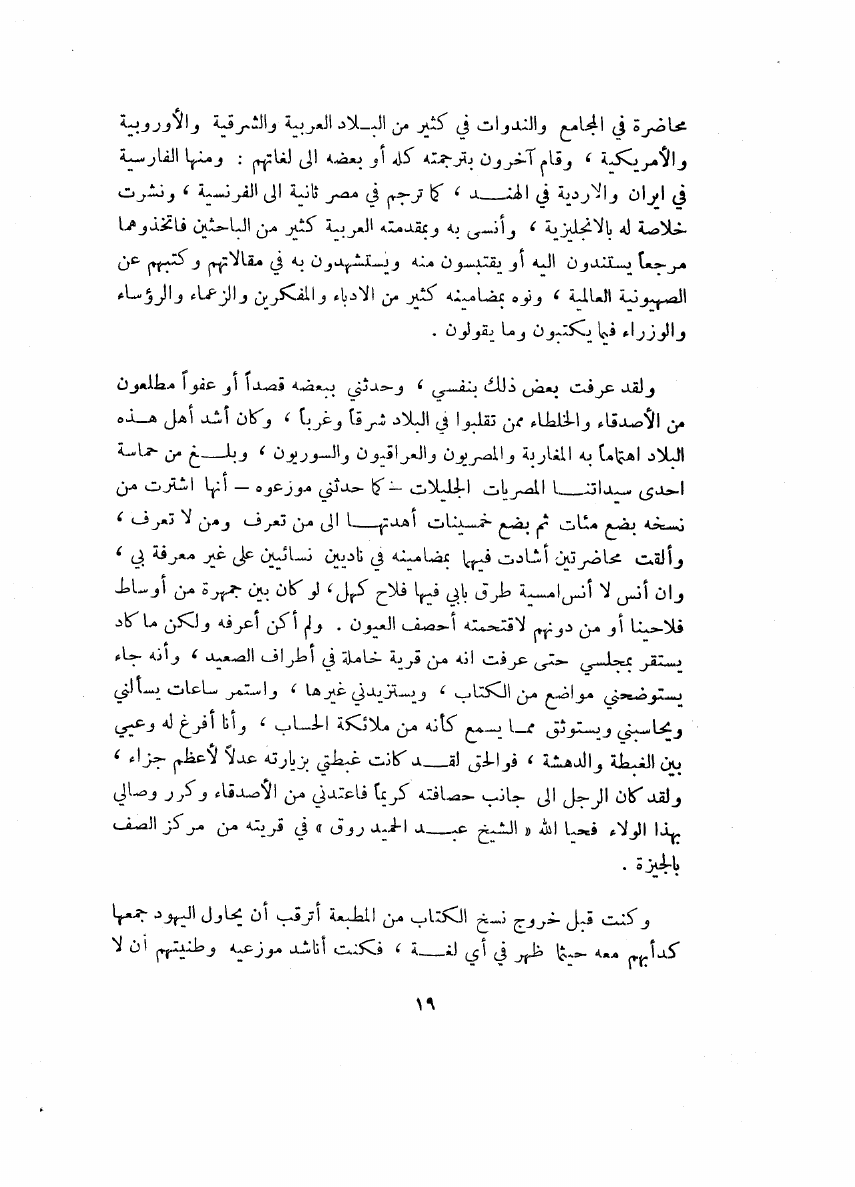 محاضرة في المجامع والندوات في كثير من البلاد العربية والشرقية والأوروبية
والأمريكية ، وقام آخرون بترجمته كله أو بعضه الى لغاتهم : ومنها الفارسية
في ايران والاردية في الهند ، كما ترجم في مصر ثانية الى الفرنسية ، ونشرت
خلاصة له بالانجليزية ، وأنسى به وبمقدمته العربية كثير من الباحثين فاتخذوهما
مرجعاً يستندون اليه أو يقتبسون منه ويستشهدون به في مقالاتهم وكتبهم عن
الصهيونية العالمية ، ونوه بمضامينه كثير من الادباء والمفكرين والزعماء والرؤساء
والوزراء فيما يكتبون وما يقولون .
ولقد عرفت بعض ذلك بنفسي ، وحدثني ببعضه قصداً أو عفواً مطلعون
من الأصدقاء والخلطاء ممن تقلبوا في البلاد شرقاً وغرباً ، وكان أشد أهل هذه
البلاد اهتماماً به المغاربة والمصريون والعراقيون والسوريون ، وبلغ من حماسة
احدى سيداتنا المصريات الجليلات – كما حدثني موزعوه – أنها اشترت من
نسخه بضع مئات ثم بضع خمسينات أهدتها الى من تعرف ومن لا تعرف ،
وألقت محاضرتين أشادت فيهما بمضامينه في ناديين نسائيين على غير معرفة بي ،
وان أنس لا أنس امسية طرق بابي فيها فلاح كهل، لو كان بين جمهرة من أوساط
فلاحينا أو من دونهم لاقتحمته أحصف العيون . ولم أكن أعرفه ولكن ما كاد
يستقر بمجلسي حتى عرفت انه من قرية خاملة في أطراف الصعيد ، وأنه جاء
يستوضحني مواضع من الكتاب ، ويستزيدني غيرها ، واستمر ساعات يسألني
ويحاسبني ويستوثق مما يسمع كأنه من ملائكة الحساب ، وأنا أفرغ له وعيي
بين الغبطة والدهشة ، فوالحق لقد كانت غبطتي بزيارته عدلاً لأعظم جزاء ،
ولقد كان الرجل الى جانب حصافته كريماً فاعتدني من الأصدقاء وكرر وصالي
بهذا الولاء فحيا الله « الشيخ عبد الحميد روق » في قريته من مركز الصف
بالجيزة .
وكنت قبل خروج نسخ الكتاب من المطبعة أترقب أن يحاول اليهود جمعها
كدأبهم معه حيثما ظهر في أي لغة ، فكنت أناشد موزعيه وطنيتهم أن لا
١٩